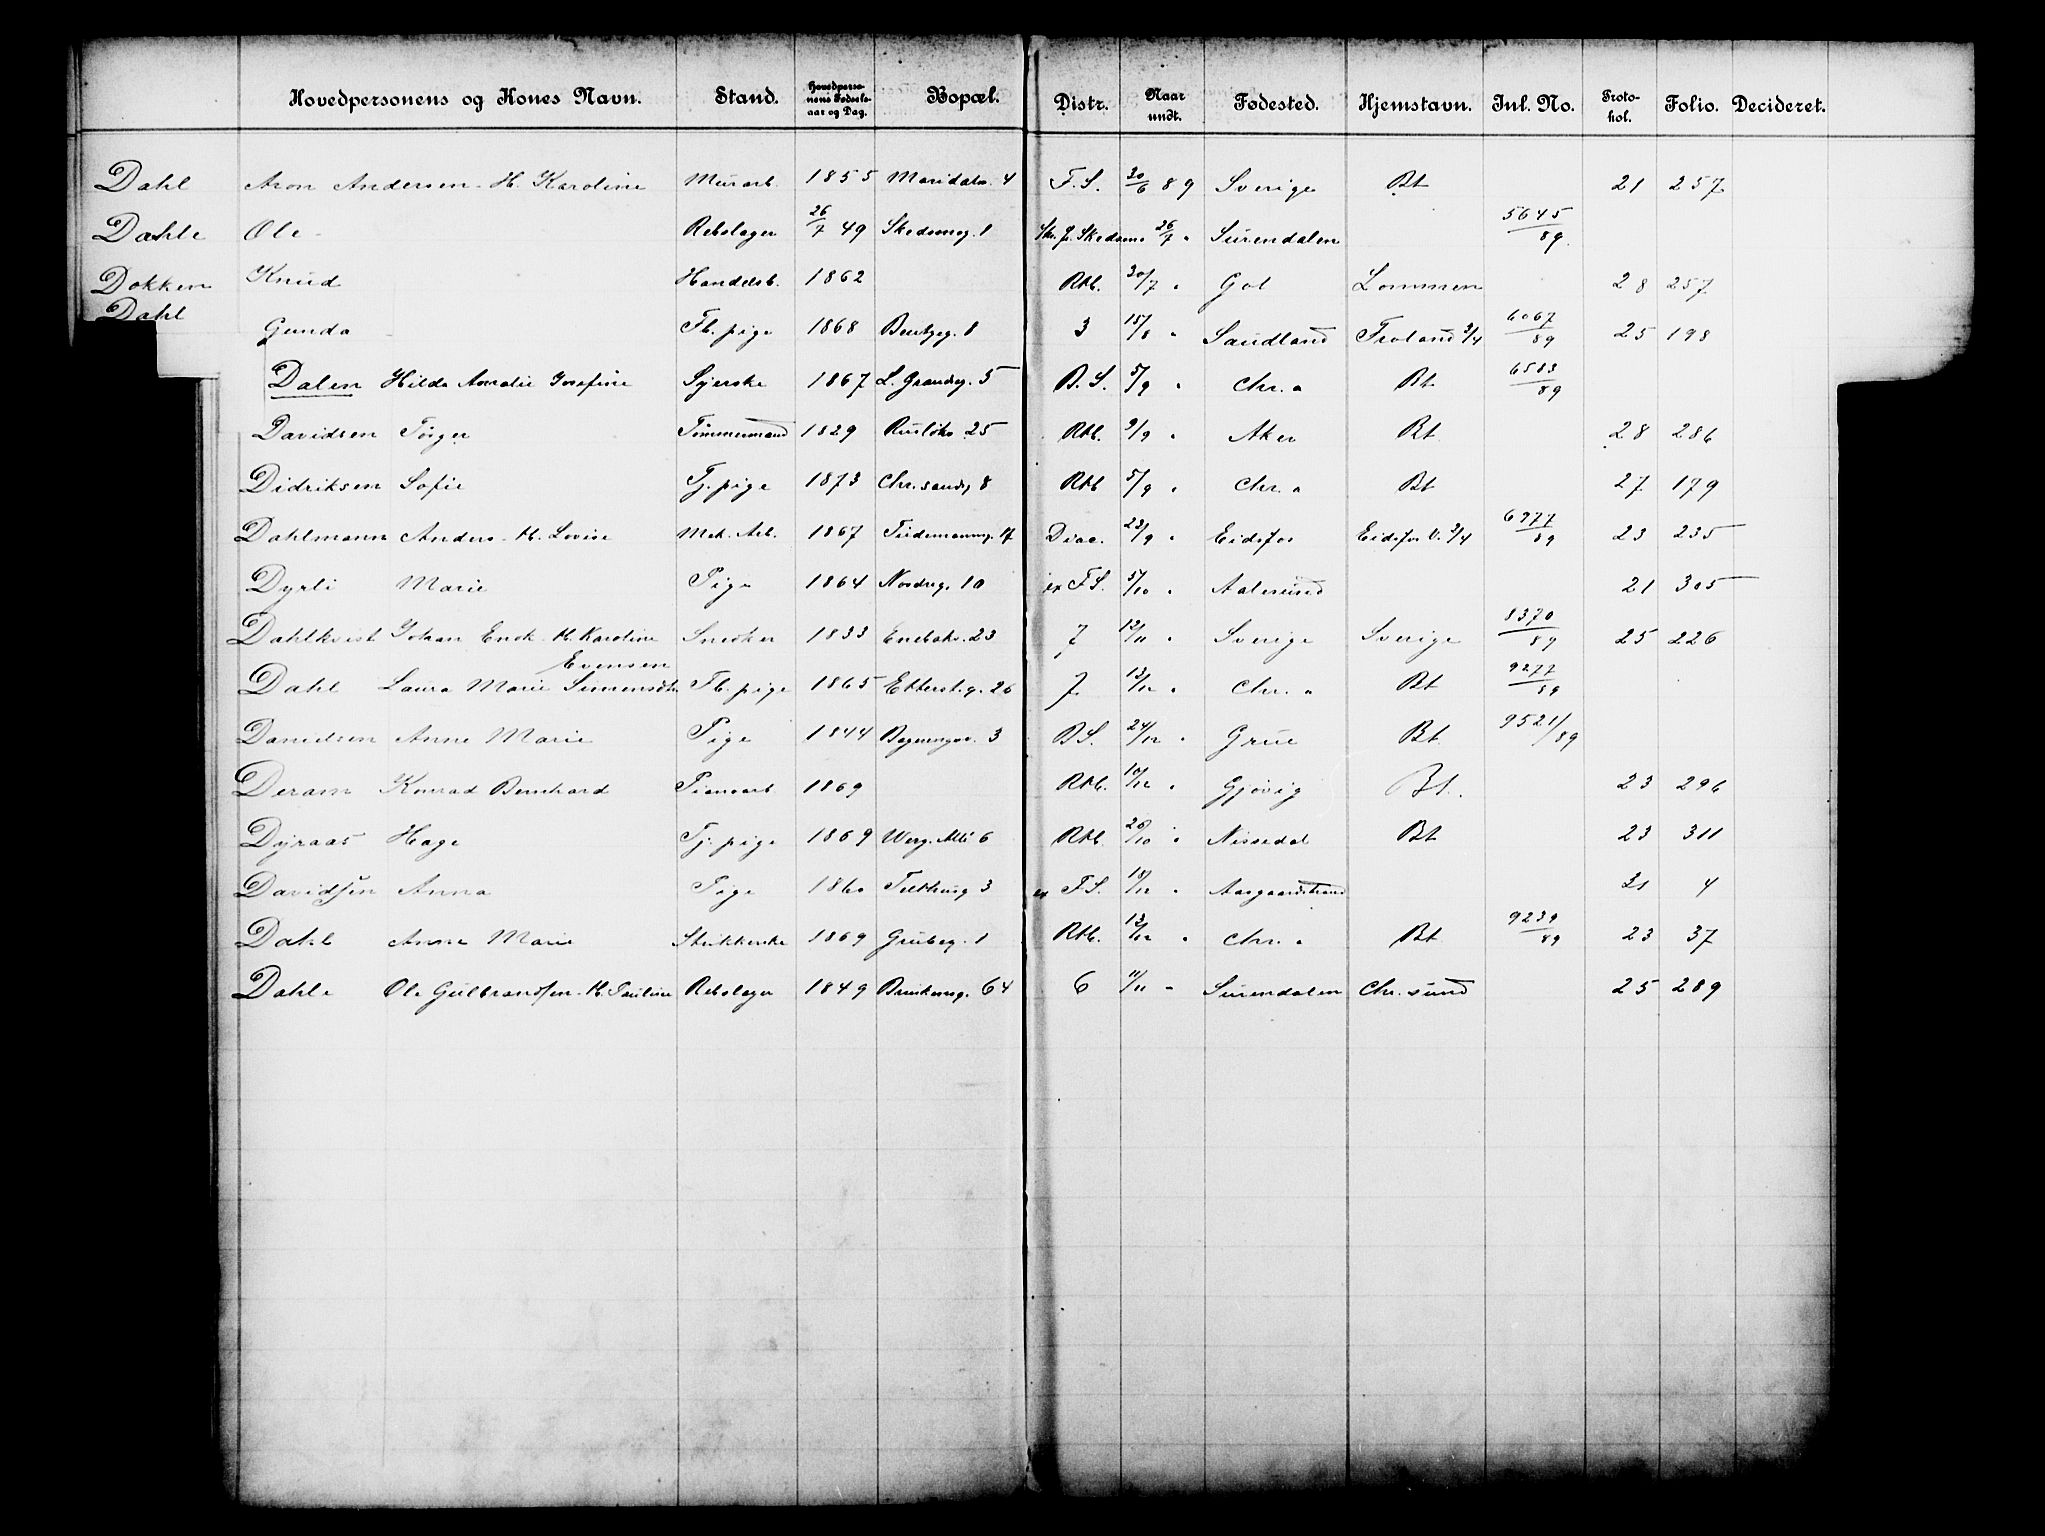 Hovedpersonens og Kones Navn. Stand. Hovedperso-nens Fødsels-aar og Dag. Bopæl. Distr. Naar undt. Fødested. Hjemstavn. Jnl. No. Proto-kol. Folio. Decideret.
Dahl Aron Andersen. H. Karoline Murarb. 1855 Maridalsv. 4 F.S. 20/6 89 Sverige Bt 21 257
Dahle Ole Rebslager 26/7 49 Skedsmog. 1 Skedsmo 26/7 " Surendalen 5645/89
Dokken Knud Handelsb. 1862 Rkb. 30/7 " Gol Lommen 28 257
Dahl Gunda Fb. pige 1868 8 3 18/8 " Saudland Froland 2/4 6067/89 25 198
Dalen Hilda Amalie Josefine Syerske 1867 L. Grændseg. 5 B.S. 5/9 " Chr.a Bt 6583/89
Davidsen Törger Tömmermand 1829 Rusløkv. 25 Rkb. 9/9 " Aker Bt 28 286
Didriksen Sofie Tj. pige 1873 Chr.sandg 8 Rkb 5/9 " Chr.a Bt 27 179
Dahlmann Anders. H. Lovise Mek. Arb. 1867 Tidemannsg. 17 Diac. 23/9 " Eidsfos Eidsfos V. 2/4 6977/89 23 235
Dyrli Marie Pige 1864 Nordreg. 10 ex F.S. 5/10 " Aalesund 21 305
Dahlkvist Johan Enok. H. Karoline Snedker 1833 Enebakv. 23 7 12/11 " Sverige Sverige 8370/89 25 226
Evensen
Dahl Laura Marie Simensdtr. Fb. pige 1865 Etterst.g. 26 7 13/12 " Chr.a Bt 9277/89
Danielsen Anne Marie Pige 1844 3 B.S. 24/12 " Grue Bt 9521/89
Deram Konrad Bernhard Pianoarb 1869 Rkb. 10/12 " Gjøvig Bt. 23 296
Dyraas Hage Tj. pige 1869 Werg. Allé 6 Rkb. 26/10 " Nissedal Bt 23 311
Davidsen Anna Pige 1860 Tulthusg 3 ex F.S. 18/12 " Aasgaardstrand 31 4
Dahl Anne Marie Strikkerske 1869 Grubeg. 1 Rkb. 13/12 " Chr.a Bt 9239/89 23 37
Dahle Ole Gulbrandsen. H. Pauline Rebslager 1849 Brinkensg. 64 6 11/11 " Surendalen Chr.sund 25 289